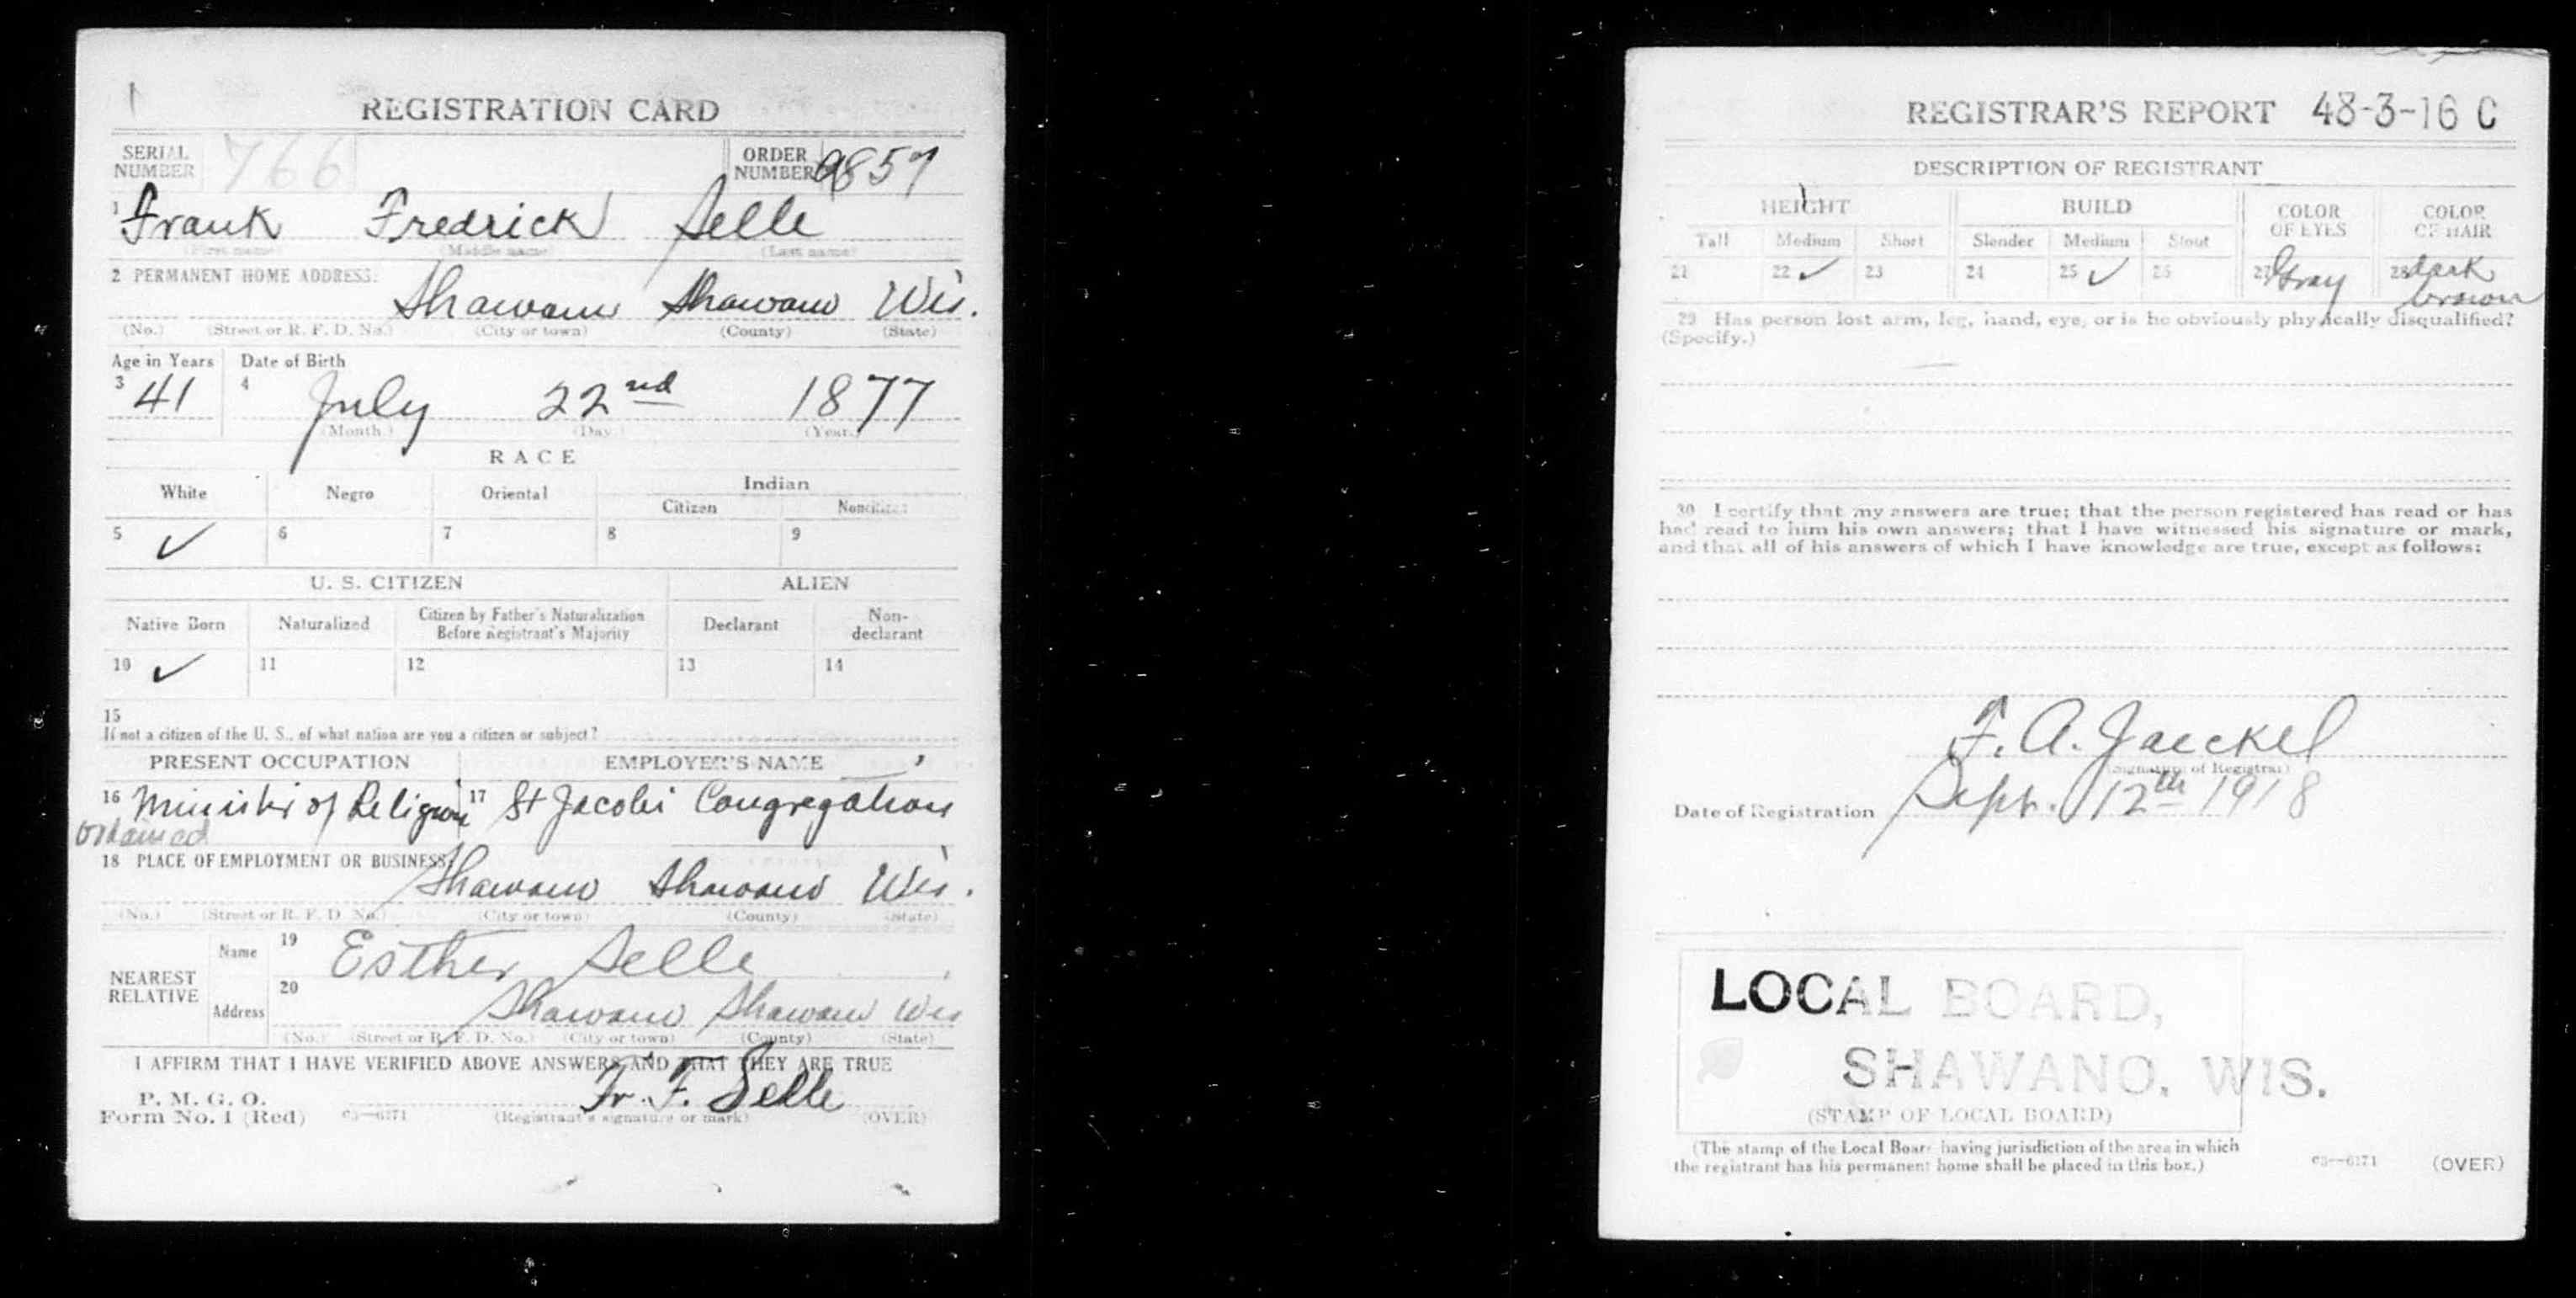 REGISTRATION CARD
SERIAL NUMBER 766 ORDER NUMBER
1 Frank Fredrick Selle
(First name) (Middle name) (Last name)
2 PERMANENT HOME ADDRESS:
Shawano Shawano Wis.
(No.) (Street or R. F. D. No.) (City or town) (County) (State)
Age in Years Date of Birth
3 41 4 July 22nd 1877
(Month.) (Day.) (Year.)
RACE
White Negro Oriental Indian
Citizen Noncitizen
5 ✓ 6 7 8 9
U. S. CITIZEN ALIEN
Native Born Naturalized Citizen by Father's Naturalization Before Registrant's Majority Declarant Non-declarant
10 ✓ 11 12 13 14
15
If not a citizen of the U. S., of what nation are you a citizen or subject?
PRESENT OCCUPATION EMPLOYER'S NAME
16 Minister of Religion 17 St Jacobi Congregation
Ordained
18 PLACE OF EMPLOYMENT OR BUSINESS:
Shawano Shawano Wis.
(No.) (Street or R. F. D. No.) (City or town) (County) (State)
NEAREST RELATIVE
Name 19 Esther Selle
Address 20 Shawano Shawano Wis
(No.) (Street or R. F. D. No.) (City or town) (County) (State)
I AFFIRM THAT I HAVE VERIFIED ABOVE ANSWERS AND THAT THEY ARE TRUE
P. M. G. O.
Form No. 1 (Red) c3—6171 Fr. F. Selle
(Registrant's signature or mark) (OVER)
REGISTRAR'S REPORT 48-3-16 C
DESCRIPTION OF REGISTRANT
HEIGHT BUILD COLOR OF EYES COLOR OF HAIR
Tall Medium Short Slender Medium Stout
21 22 ✓ 23 24 25 ✓ 26 27 Gray 28 dark brown
29 Has person lost arm, leg, hand, eye, or is he obviously physically disqualified?
(Specify.)
30 I certify that my answers are true; that the person registered has read or has
had read to him his own answers; that I have witnessed his signature or mark,
and that all of his answers of which I have knowledge are true, except as follows:
F. A. Jaeckel
(Signature of Registrar)
Date of Registration Sept. 12th 1918
LOCAL BOARD,
SHAWANO, WIS.
(STAMP OF LOCAL BOARD)
(The stamp of the Local Board having jurisdiction of the area in which
the registrant has his permanent home shall be placed in this box.)
c3—6171 (OVER)